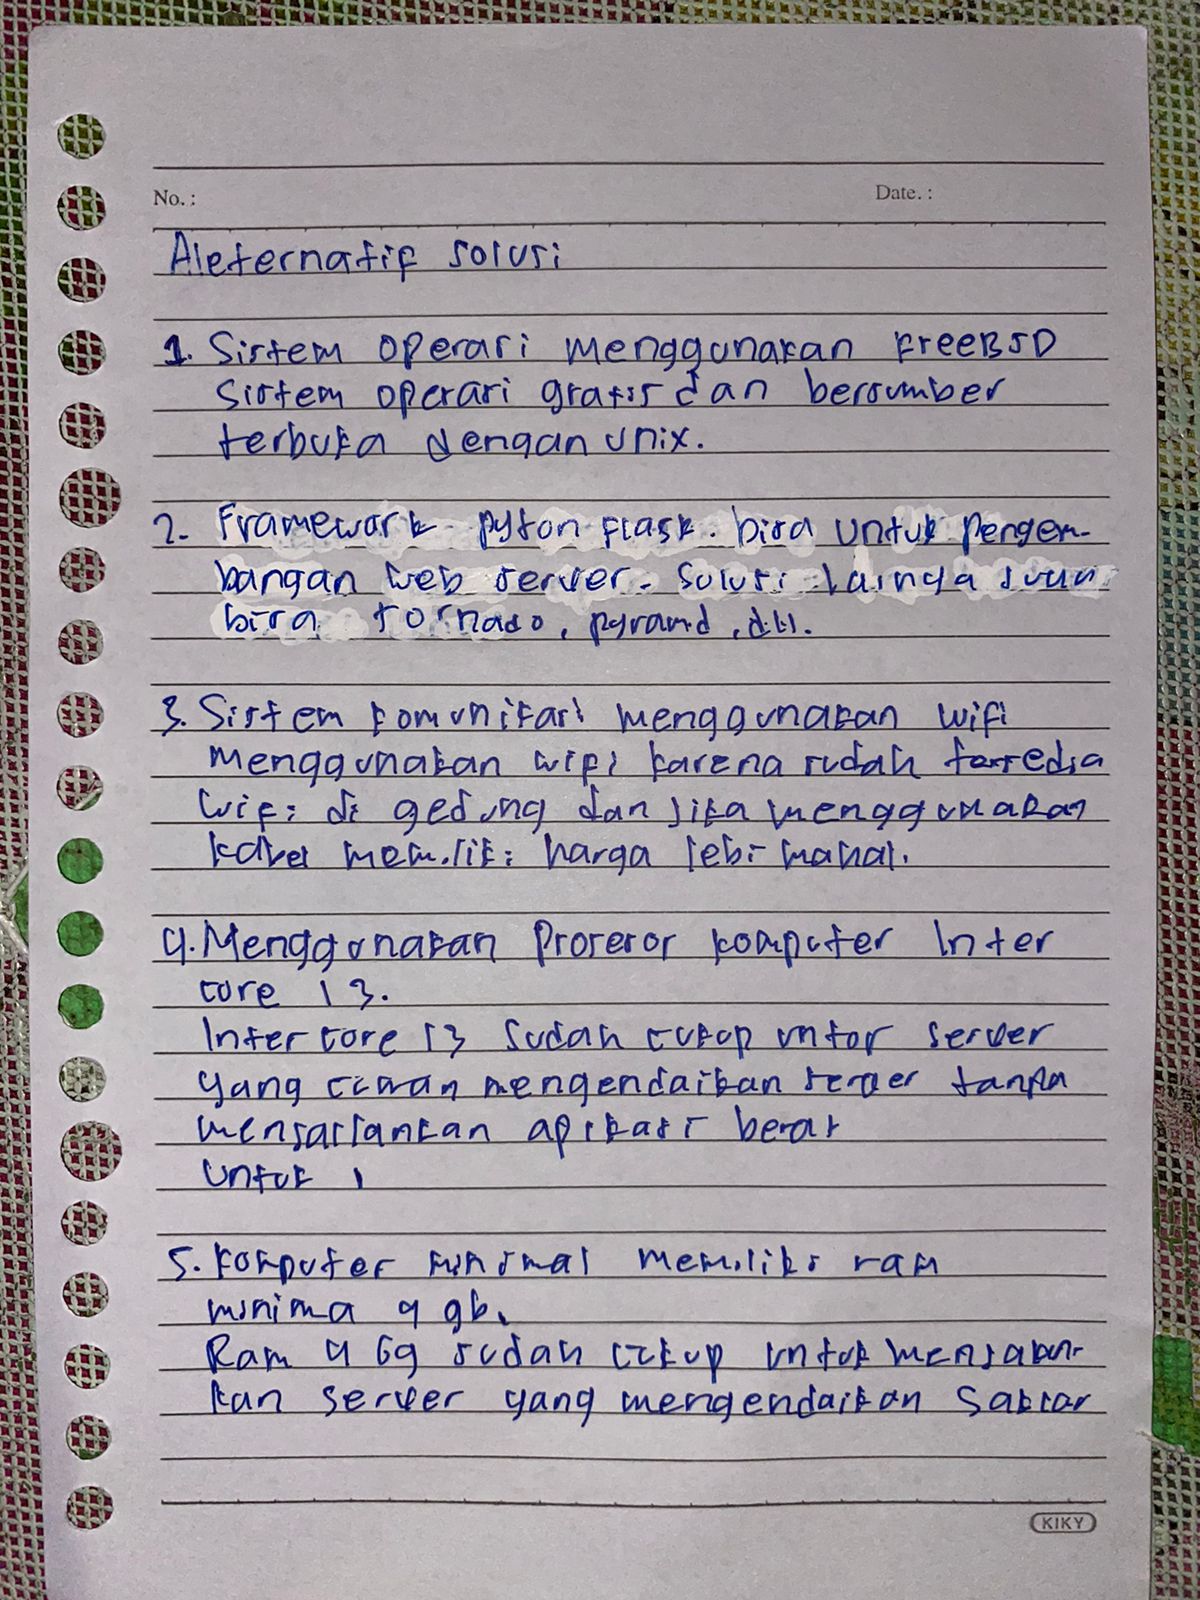 No. :
Date. :
Aleternatif solusi
1. Sistem operasi menggunakan FreeBSD
Sistem operasi gratis dan bersumber
terbuka dengan unix.
2. Framework pyton flask. bisa untuk pengem-
bangan web server. Solusi lainya
bisa tornado, pyramd, dll.
3. Sistem komunikasi menggunakan wifi
Menggunakan wifi karena sudah tersedia
wifi di gedung dan jika menggunakan
kabel memiliki harga lebi mahal.
4. Menggunakan Prosesor komputer Inter
core i3.
Inter core i3 sudah cukup untor server
yang mengendaikan server tanpa
menjarlankan apikasi berat
Untuk
5. Komputer minimal memiliki ram
minima 4 gb.
Ram 4 Gg sudah cukup untuk menjaban-
kan server yang mengendaikan Saklar
KIKY